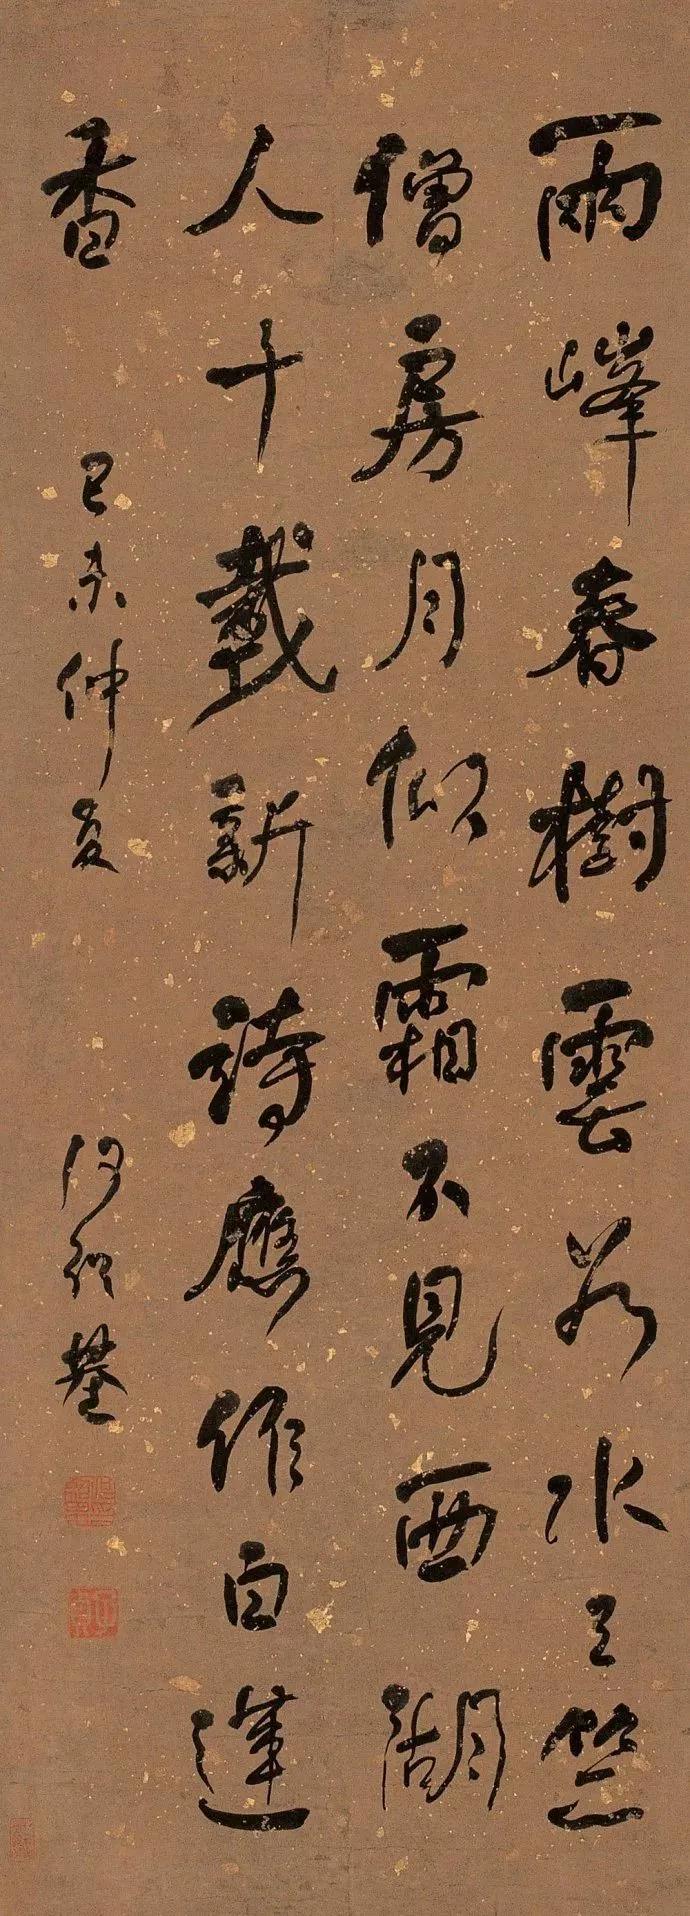 兩峯春樹雲若水三竺
僧房月似霜不見西湖
人十載新詩應作白蓮
香 己未仲夏 何紹基